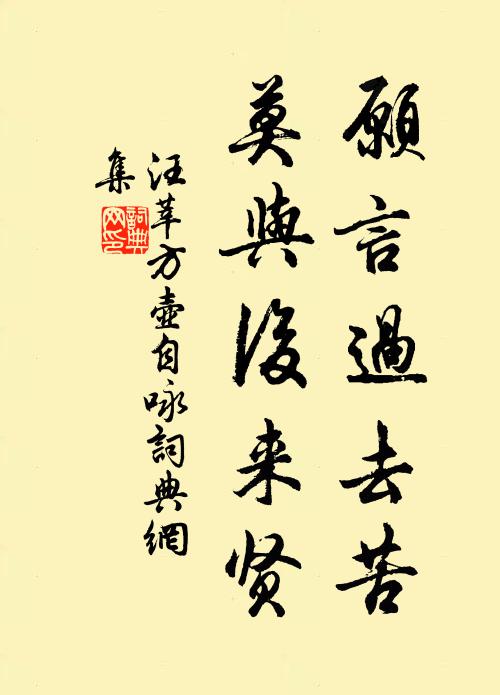 願言過去苦
莫與後来贤
汪莘方壺自咏詞典網
集
詞典网印